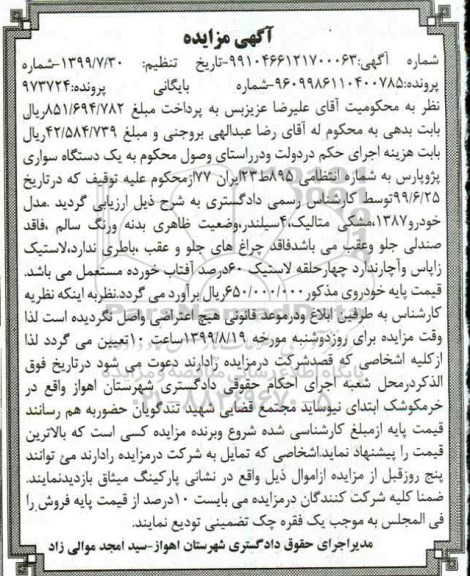 آگهی مزایده
شماره آگهی:۹۹۱۰۴۶۶۱۲۱۷۰۰۰۶۳-تاریخ تنظیم: ۱۳۹۹/۷/۳۰-شماره
پرونده:۹۶۰۹۹۸۶۱۱۰۴۰۰۷۸۵-شماره بایگانی پرونده:۹۷۳۷۲۴
نظر به محکومیت آقای علیرضا عزیزیس به پرداخت مبلغ ۸۵۱/۶۹۴/۷۸۲ریال
بابت بدهی به محکوم له آقای رضا عبدالهی بروجنی و مبلغ ۴۲/۵۸۴/۷۳۹ریال
بابت هزینه اجرای حکم دردولت ودرراستای وصول محکوم به یک دستگاه سواری
پژوپارس به شماره انتظامی ۸۹۵ط۲۳ایران ۷۷ازمحکوم علیه توقیف که درتاریخ
۹۹/۶/۲۵توسط کارشناس رسمی دادگستری به شرح ذیل ارزیابی گردید .مدل
خودرو۱۳۸۷،مشکی متالیک،۴سیلندر،وضعیت ظاهری بدنه ورنگ سالم ،فاقد
صندلی جلو وعقب می باشدفاقد چراغ های جلو و عقب ،باطری ندارد،لاستیک
زاپاس وآچارندارد چهارحلقه لاستیک ۶۰درصد آفتاب خورده مستعمل می باشد.
قیمت پایه خودروی مذکور۶۵۰/۰۰۰/۱۰۰ریال برآورد می گردد.نظربه اینکه نظریه
کارشناس به طرفین ابلاغ ودرموعد قانونی هیچ اعتراضی واصل نگردیده است لذا
وقت مزایده برای روزدوشنبه مورخه ۱۳۹۹/۸/۱۹ساعت ۱۰تعیین می گردد لذا
ازکلیه اشخاصی که قصدشرکت درمزایده رادارند دعوت می شود درتاریخ فوق
الذکردرمحل شعبه اجرای احکام حقوقی دادگستری شهرستان اهواز واقع در
خرمکوشک ابتدای نیوساید مجتمع قضایی شهید تندگویان حضوربه هم رسانند
قیمت پایه ازمبلغ کارشناسی شده شروع وبرنده مزایده کسی است که بالاترین
قیمت را پیشنهاد نماید.اشخاصی که تمایل به شرکت درمزایده رادارند می توانند
پنج روزقبل از مزایده ازاموال ذیل واقع در نشانی پارکینگ میثاق بازدیدنمایند.
ضمنا کلیه شرکت کنندگان درمزایده می بایست ۱۰درصد از قیمت پایه فروش را
فی المجلس به موجب یک فقره چک تضمینی تودیع نمایند.
مدیراجرای حقوق دادگستری شهرستان اهواز-سید امجد موالی زاد